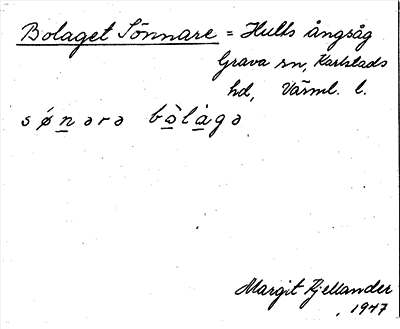 Bolaget Sönnare = Hults ångsåg
Grava sn, Karlstads
hd, Värml. l.
sǿn̲ərə bò̲lá̲gə
Margit Kjellander
1947